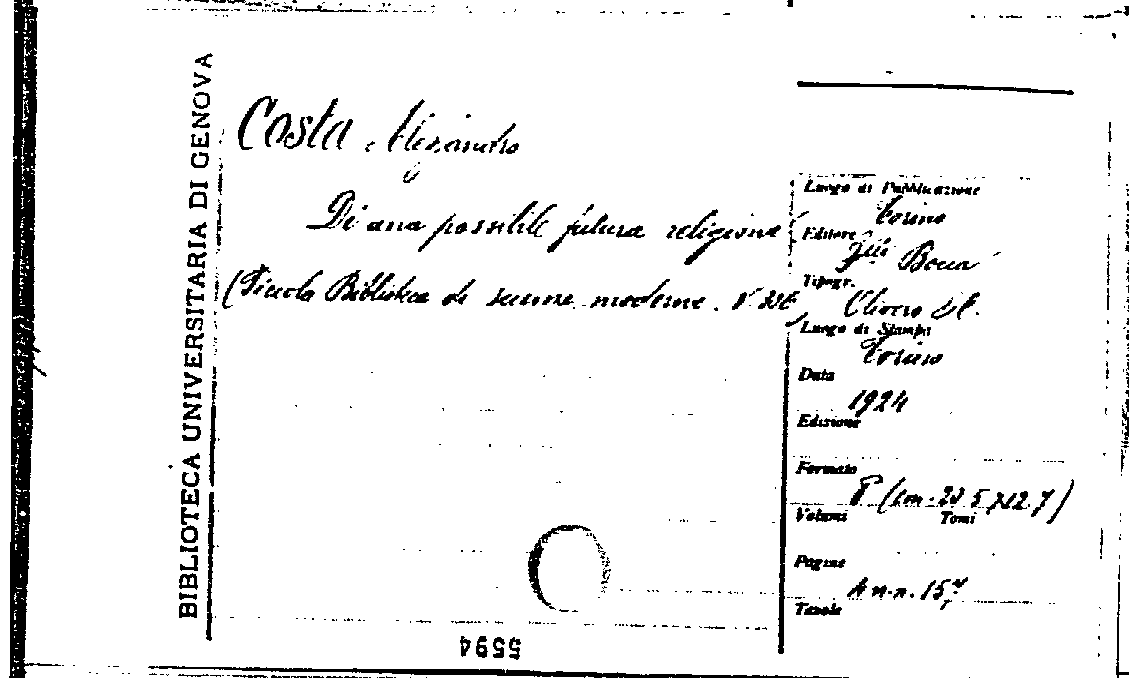 BIBLIOTECA UNIVERSITARIA DI GENOVA
Costa Alessandro
Di una possibile futura religione
(Piccola Biblioteca di scienze moderne. N.
Luogo di Pubblicazione
Torino
Editore
F.lli Bocca
Tipogr.
Luogo di Stampa
Torino
Data
1924
Edizione
Formato
8° (cm. 20 5 x12 7)
Volumi Tomi
Pagine
4 n.n. 157
Tavole
5594